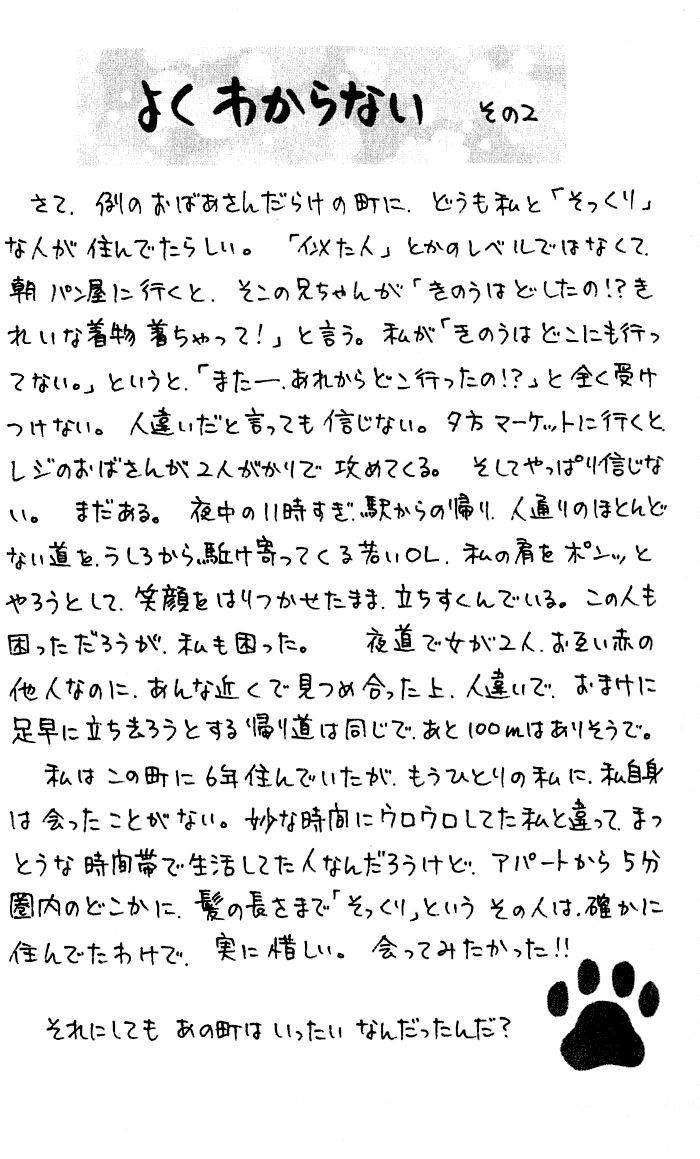 よくわからない その2
さて、例のおばあさんだらけの町に、どうも私と「そっくり」
な人が住んでたらしい。「似た人」とかのレベルではなくて、
朝パン屋に行くと、そこの兄ちゃんが「きのうはどしたの!?き
れいな着物着ちゃって!」と言う。私が「きのうはどこにも行っ
てない。」というと、「またー、あれからどこ行ったの!?」と全く受け
つけない。人違いだと言っても信じない。夕方マーケットに行くと、
レジのおばさんが2人がかりで攻めてくる。そしてやっぱり信じな
い。まだある。夜中の11時すぎ、駅からの帰り、人通りのほとんど
ない道を、うしろから駈け寄ってくる若いOL、私の肩をポンッと
やろうとして、笑顔をはりつかせたまま、立ちすくんでいる。この人も
困っただろうが、私も困った。夜道で女が2人、お互い赤の
他人なのに、あんな近くで見つめ合った上、人違いで、おまけに
足早に立ち去ろうとする帰り道は同じで、あと100mはありそうで。
私はこの町に6年住んでいたが、もうひとりの私に、私自身
は会ったことがない。妙な時間にウロウロしてた私と違って、まっ
とうな時間帯で生活してた人なんだろうけど、アパートから5分
圏内のどこかに、髪の長さまで「そっくり」というその人は、確かに
住んでたわけで、実に惜しい。会ってみたかった!!
それにしてもあの町はいったいなんだったんだ?